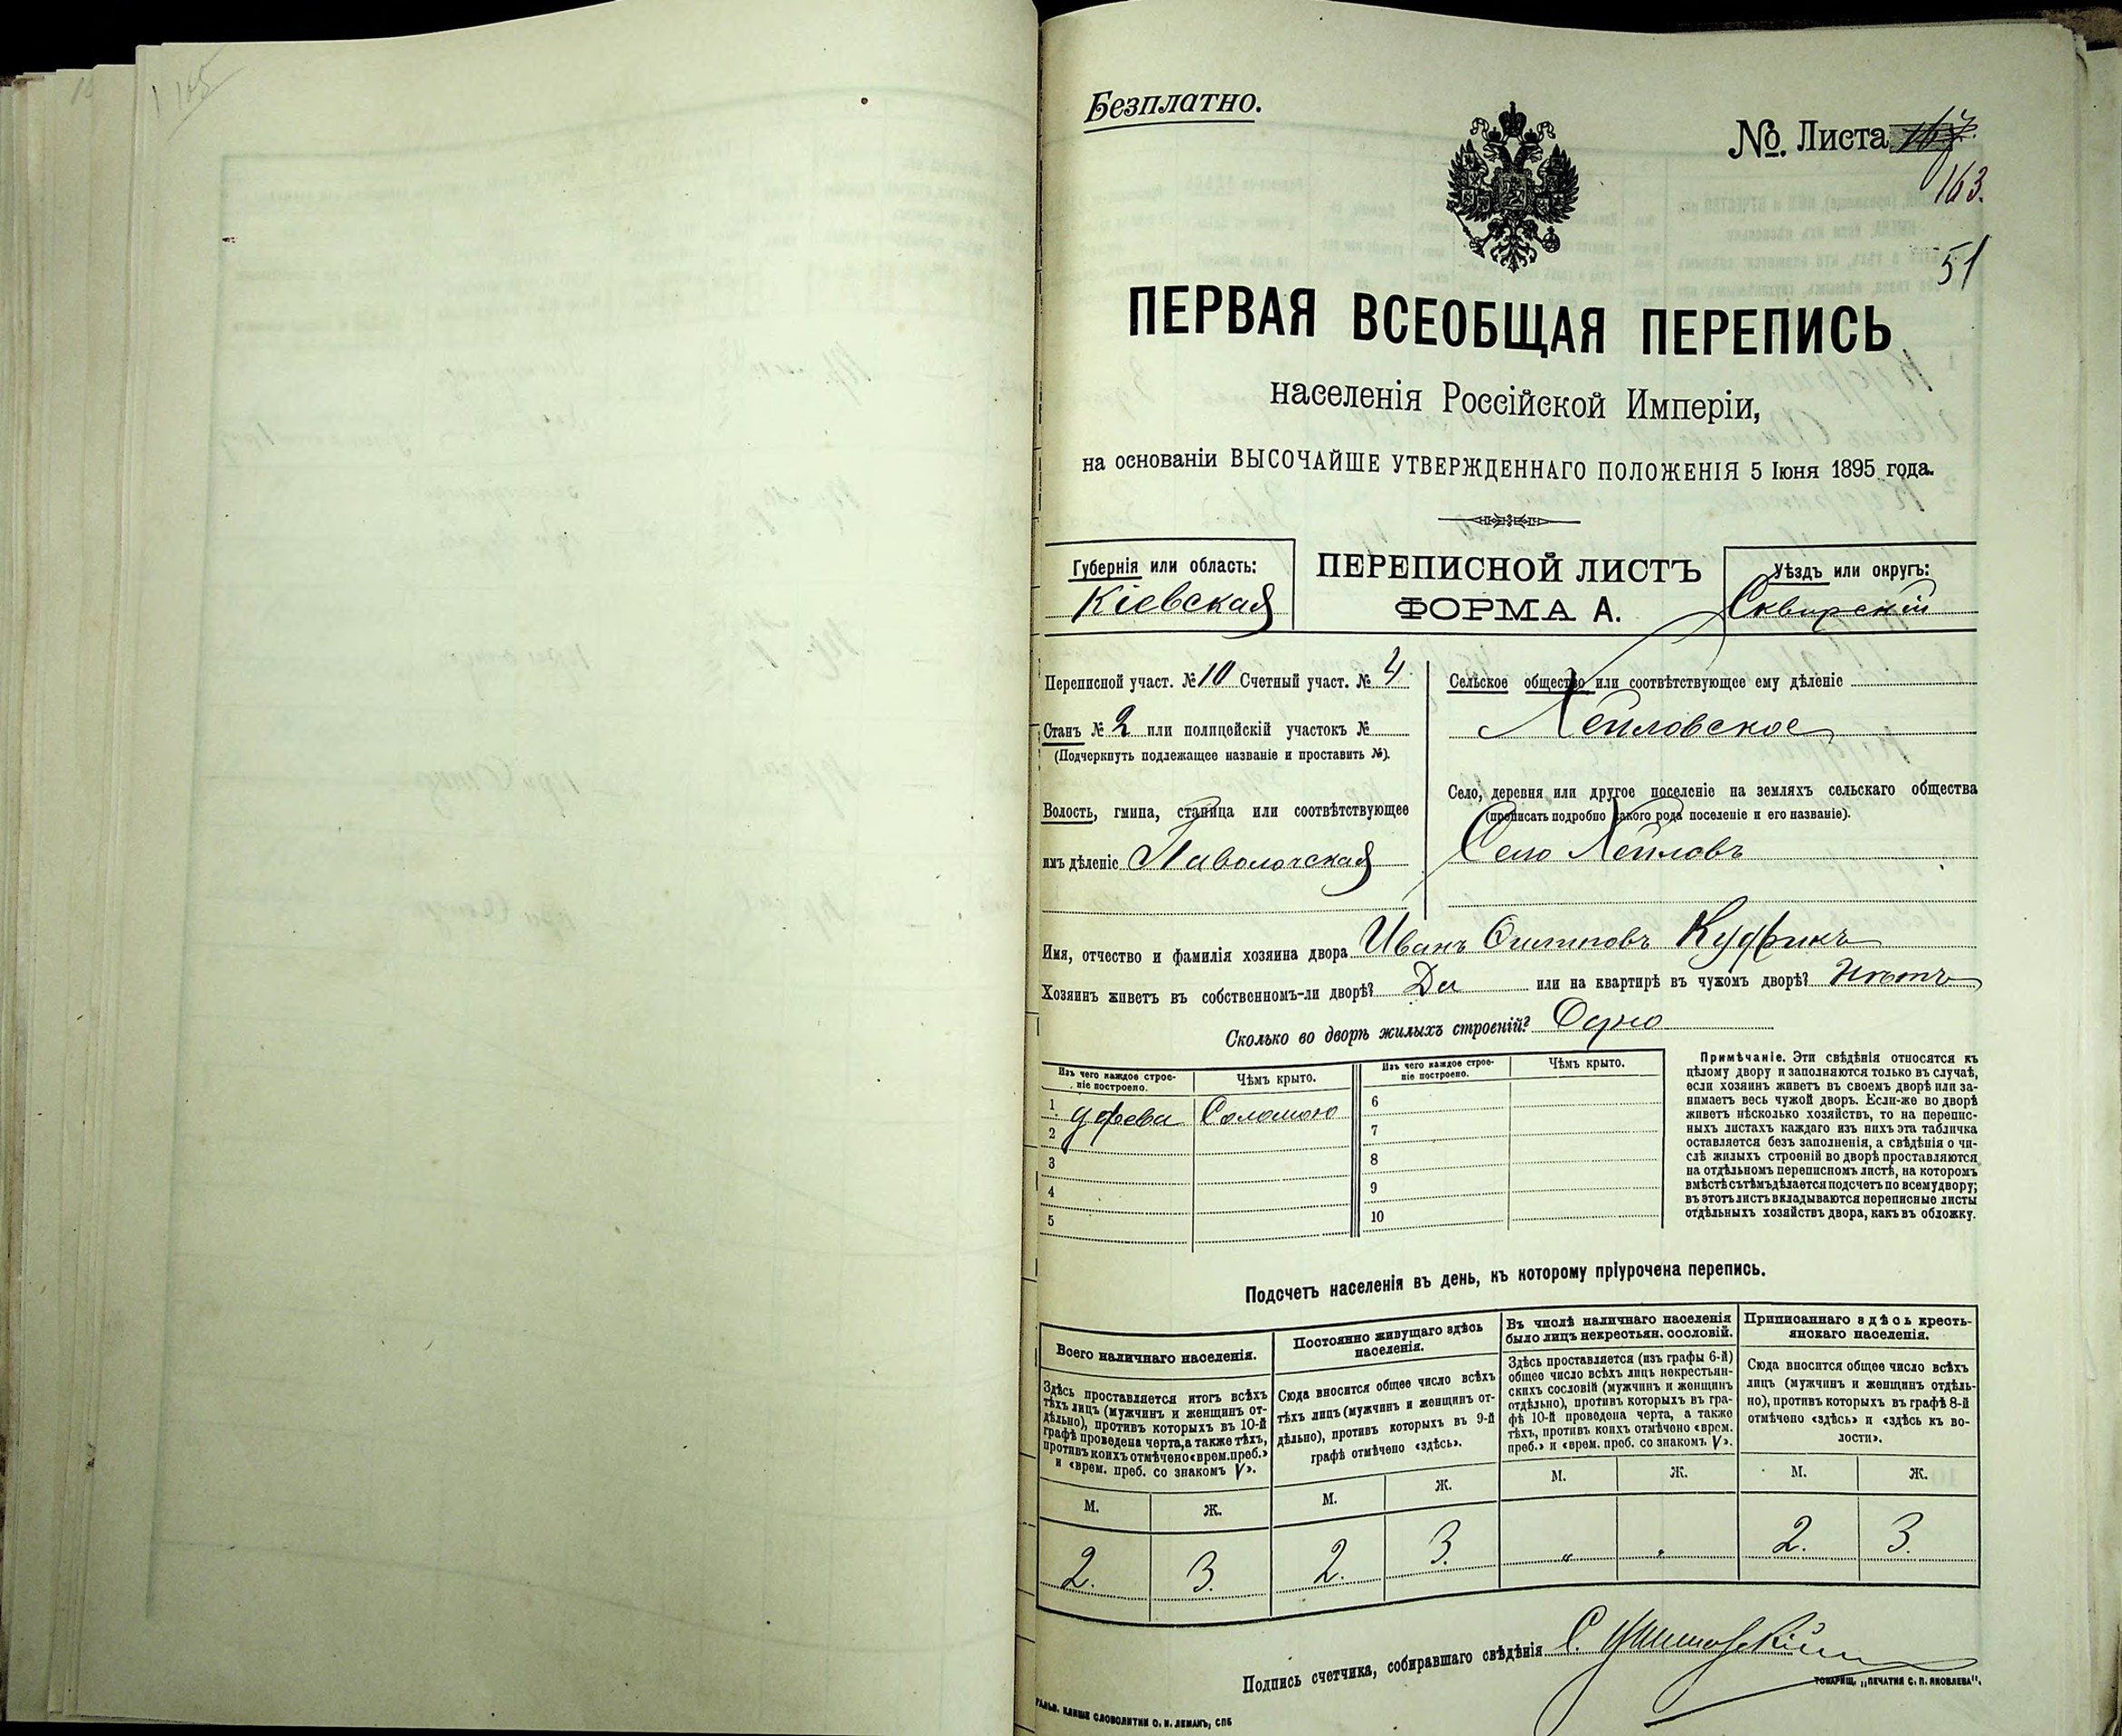 165
Безплатно.
№ Листа 167.
163.
51
ПЕРВАЯ ВСЕОБЩАЯ ПЕРЕПИСЬ
населенія Россійской Имперіи,
на основаніи ВЫСОЧАЙШЕ УТВЕРЖДЕННАГО ПОЛОЖЕНІЯ 5 Іюня 1895 года.
Губернія или область:
Кіевская
ПЕРЕПИСНОЙ ЛИСТЪ
ФОРМА А.
Уѣздъ или округъ:
Сквирскій
Переписной участ. № 10 Счетный участ. № 4
Станъ № 2 или полицейскій участокъ №
(Подчеркнуть подлежащее названіе и проставить №).
Волость, гмина, станица или соотвѣтствующее
имъ дѣленіе Паволочская
Сельское общество или соотвѣтствующее ему дѣленіе
Село, деревня или другое поселеніе на земляхъ сельскаго общества
(прописать подробно какого рода поселеніе и его названіе).
Село
Имя, отчество и фамилія хозяина двора Иванъ
Хозяинъ живетъ въ собственномъ-ли дворѣ? Да или на квартирѣ въ чужомъ дворѣ? Нѣтъ
Сколько во дворѣ жилыхъ строеній? Одно
Изъ чего каждое строе-
ніе построено.
Чѣмъ крыто.
Изъ чего каждое строе-
ніе построено.
Чѣмъ крыто.
1. древа Соломою
2
3
4
5
6
7
8
9
10
Примѣчаніе. Эти свѣдѣнія относятся къ
цѣлому двору и заполняются только въ случаѣ,
если хозяинъ живетъ въ своемъ дворѣ или за-
нимаетъ весь чужой дворъ. Если-же во дворѣ
живетъ нѣсколько хозяйствъ, то на перепис-
ныхъ листахъ каждаго изъ нихъ эта табличка
оставляется безъ заполненія, а свѣдѣнія о чи-
слѣ жилыхъ строеній во дворѣ проставляются
на отдѣльномъ переписномъ листѣ, на которомъ
вмѣстѣ съ тѣмъ дѣлается подсчетъ по всему двору;
въ этотъ листъ вкладываются переписные листы
отдѣльныхъ хозяйствъ двора, какъ въ обложку.
Подсчетъ населенія въ день, къ которому пріурочена перепись.
Всего наличнаго населенія.
Здѣсь проставляется итогъ всѣхъ
тѣхъ лицъ (мужчинъ и женщинъ от-
дѣльно), противъ которыхъ въ 10-й
графѣ проведена черта, а также тѣхъ,
противъ коихъ отмѣчено «врем. преб.»
и «врем. преб. со знакомъ V».
М.
Ж.
2.
3.
Постоянно живущаго здѣсь
населенія.
Сюда вносится общее число всѣхъ
тѣхъ лицъ (мужчинъ и женщинъ от-
дѣльно), противъ которыхъ въ 9-й
графѣ отмѣчено «здѣсь».
М.
Ж.
2.
3.
Въ числѣ наличнаго населенія
было лицъ некрестьян. сословій.
Здѣсь проставляется (изъ графы 6-й)
общее число всѣхъ лицъ некрестьян-
скихъ сословій (мужчинъ и женщинъ
отдѣльно), противъ которыхъ въ гра-
фѣ 10-й проведена черта, а также
тѣхъ, противъ коихъ отмѣчено «врем.
преб.» и «врем. преб. со знакомъ V».
М.
Ж.
"
Приписаннаго здѣсь кресть-
янскаго населенія.
Сюда вносится общее число всѣхъ
лицъ (мужчинъ и женщинъ отдѣль-
но), противъ которыхъ въ графѣ 8-й
отмѣчено «здѣсь» и «здѣсь къ во-
лости».
М.
Ж.
2.
3.
Подпись счетчика, собиравшаго свѣдѣнія С.
ГАЛЬВ. КЛИШЕ СЛОВОЛИТНИ О. И. ЛЕМАНЪ, СПБ
ТОВАРИЩ. „ПЕЧАТНЯ С. П. ЯКОВЛЕВА".